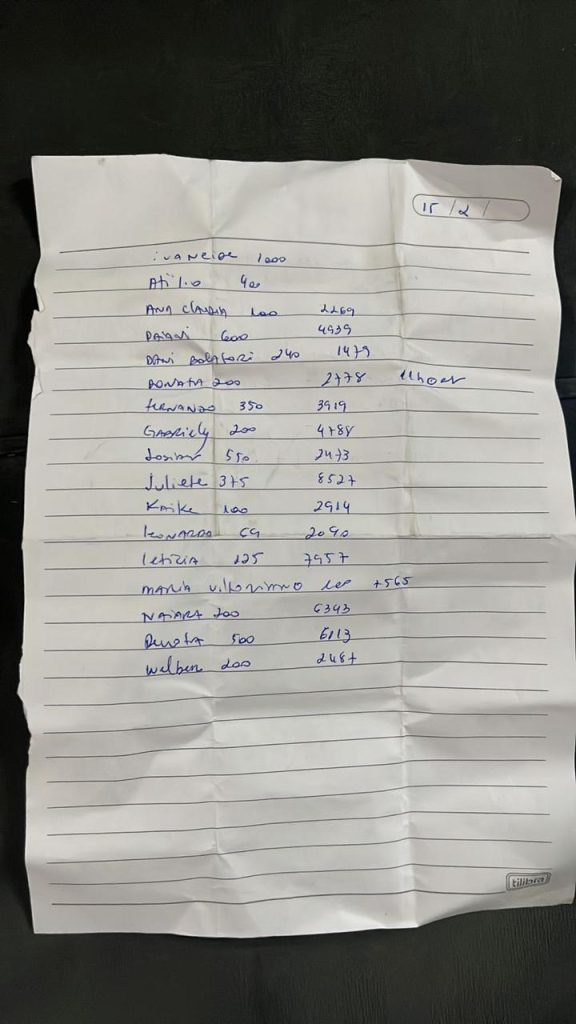 15/2/
ivaneide 1000
Atilio 400
ANA CLAUDIA 100 2269
DAIANI 600 4939
DANI 240 1479
DONATA 200 2778
fERNANDO 350 3919
GABRIELY 200 4788
Josimar 550 2473
Juliete 375 8527
Kaike 100 2914
LEONARDO 69 2090
letizia 125 7957
MARIA +565
NAIARA 200 6393
Renata 500 6113
Welben 200 2487
tilibra